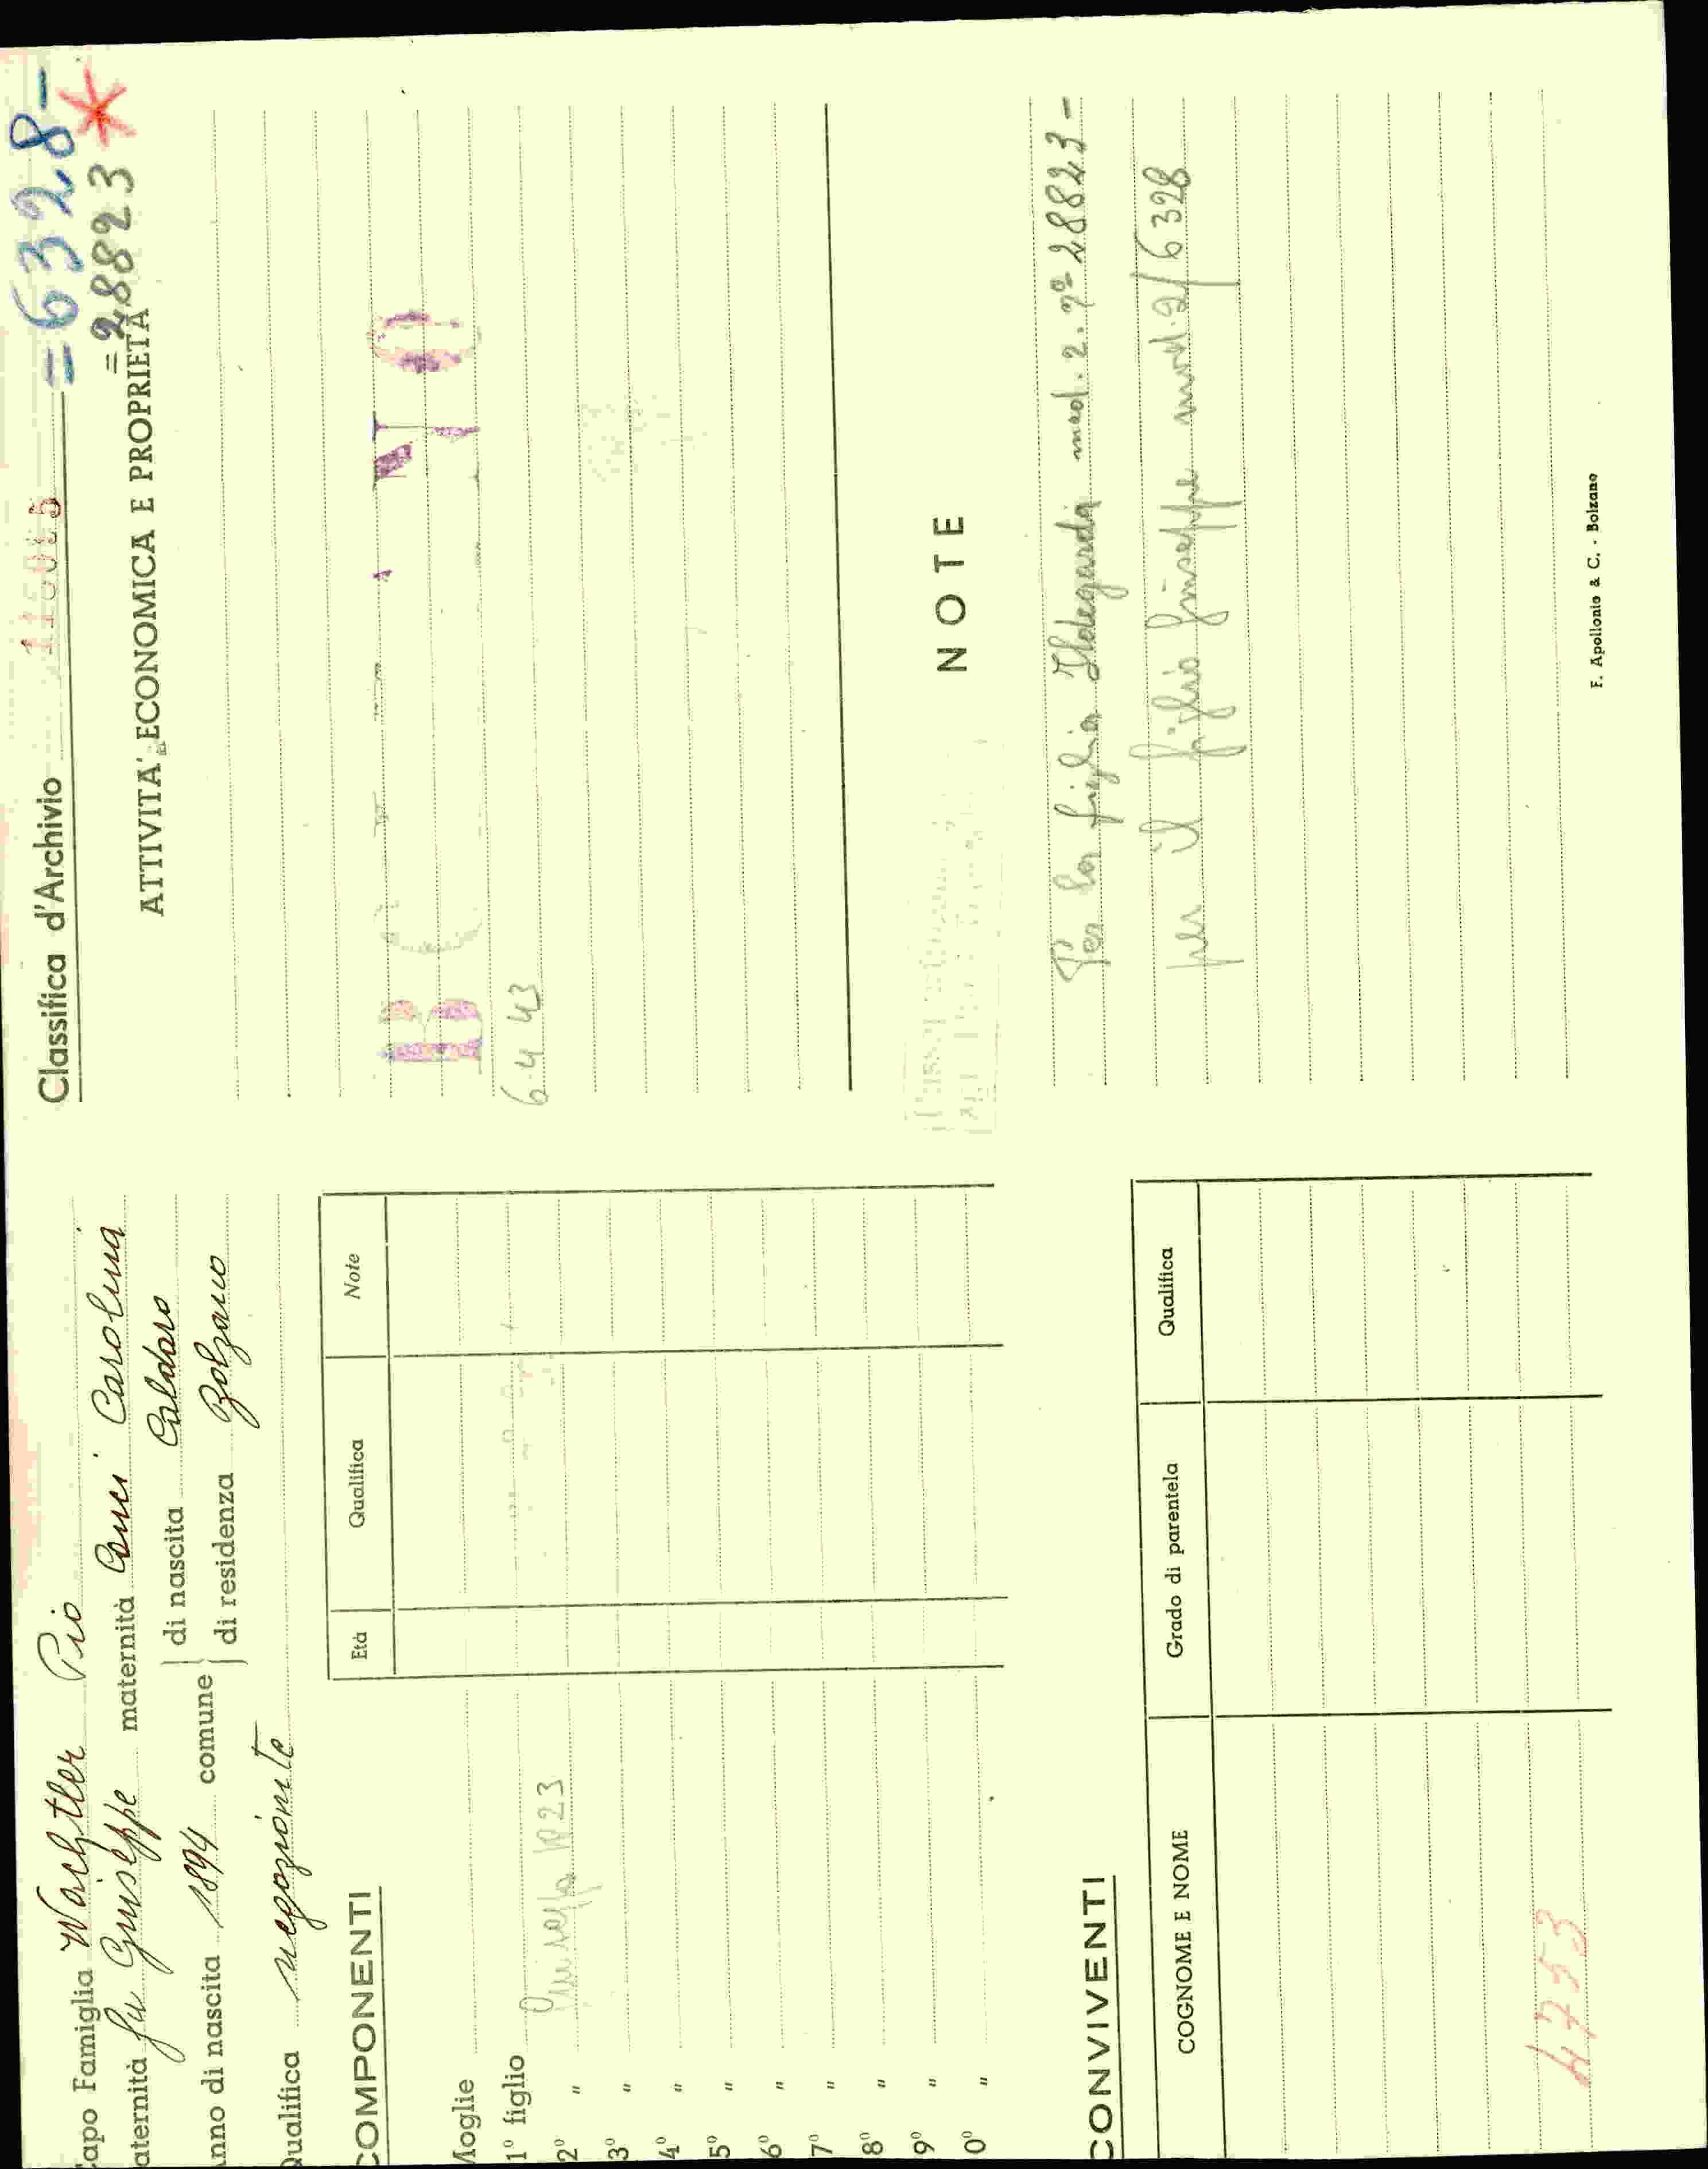 Capo Famiglia Wachtler Pio
aternità fu Giuseppe maternità Conci Carolina
nno di nascita 1894 comune di nascita Caldaro
di residenza Bolzano
Qualifica negoziante
COMPONENTI
Età Qualifica Note
Moglie
1º figlio Giuseppe 1923
2º "
3º "
4º "
5º "
6º "
7º "
8º "
9º "
0º "
CONVIVENTI
COGNOME E NOME Grado di parentela Qualifica
4753
Classifica d'Archivio = 6328-
= 28823 *
ATTIVITA' ECONOMICA E PROPRIETÀ
6 4 43
NOTE
Per la figlia Ildegarda mod. 2. nº 28823-
per il figlio Giuseppe mod. 2/6328
F. Apollonio & C. - Bolzano